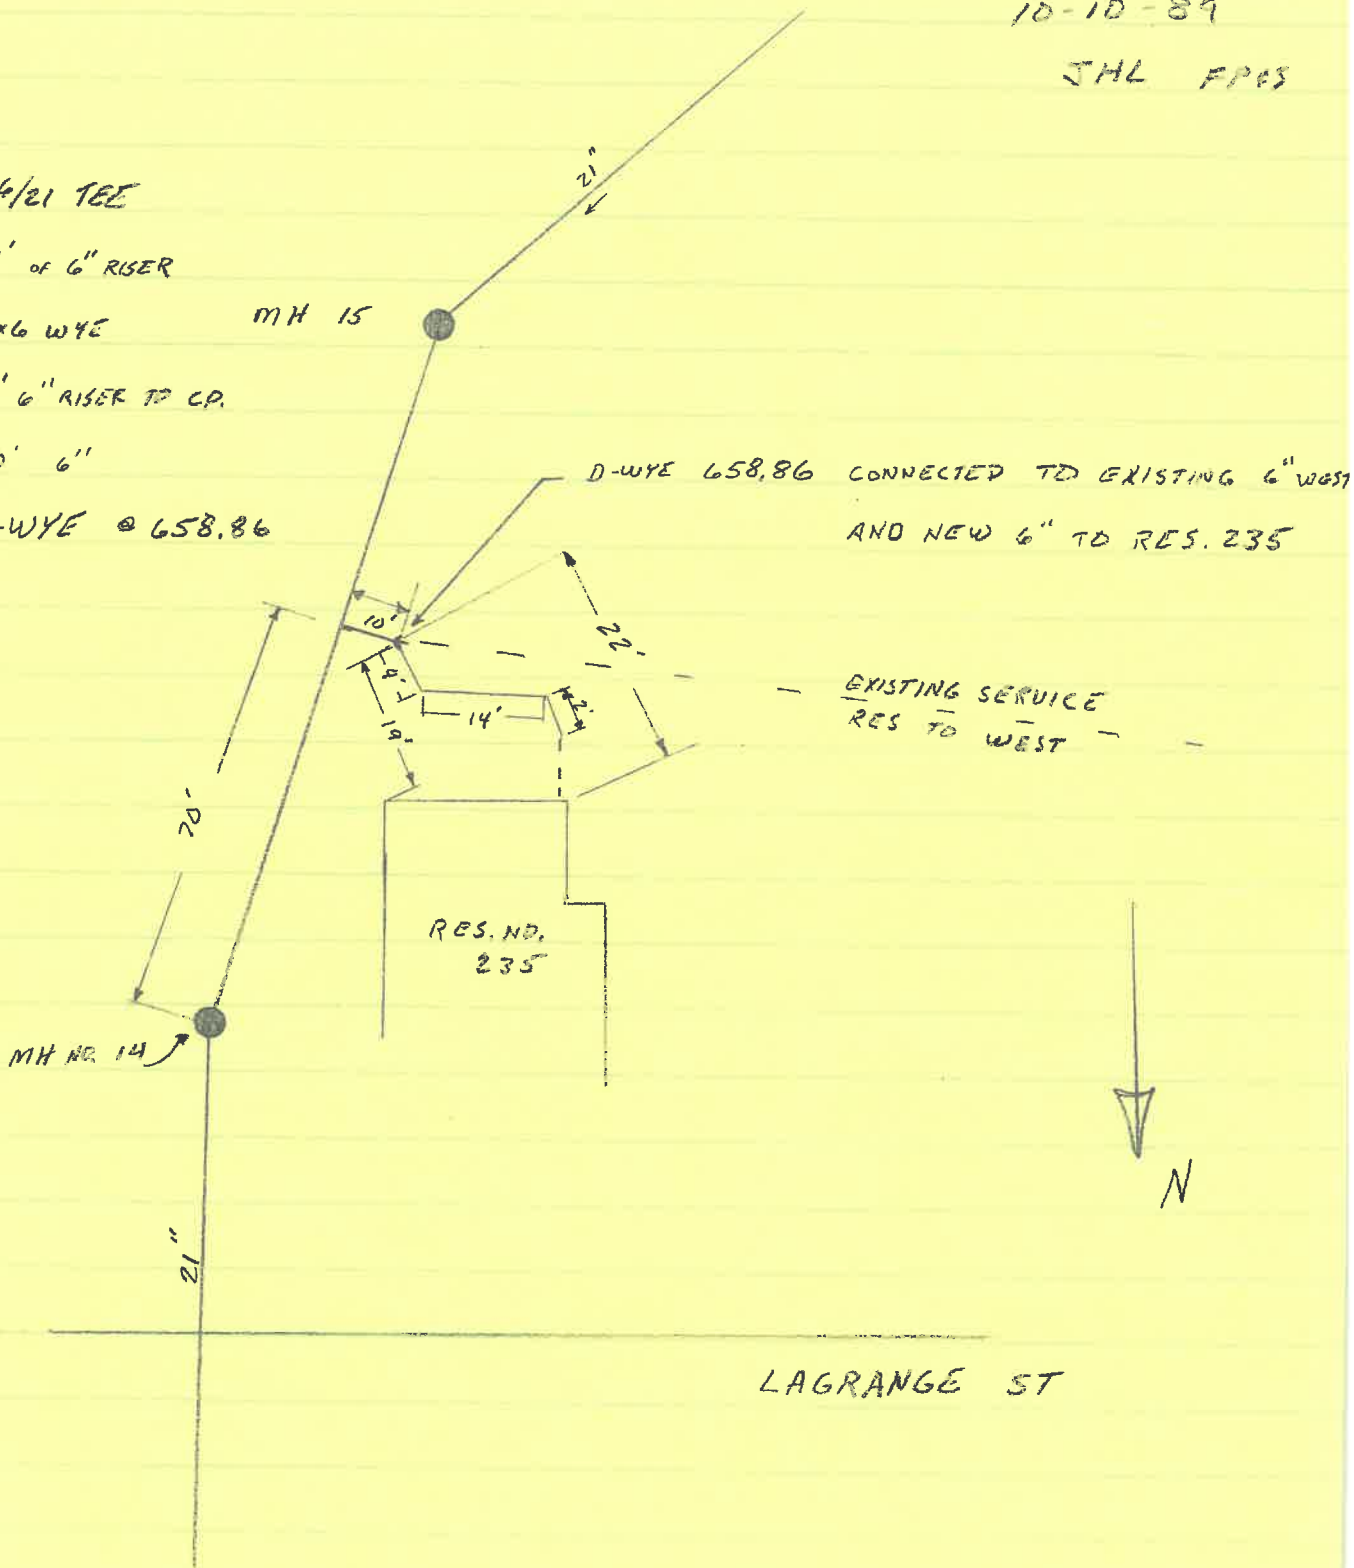 10-10-89
JHL
21"
6/21 TEE
' OF 6" RISER
x6 WYE
' 6" RISER TO CO.
0' 6"
-WYE @ 658.86
MH 15
D-WYE 658.86 CONNECTED TO EXISTING 6" WEST
AND NEW 6" TO RES. 235
10'
22'
4'
14'
2'
18'
EXISTING SERVICE
RES TO WEST
70'
RES. NO.
235
MH NO. 14
N
21"
LAGRANGE ST